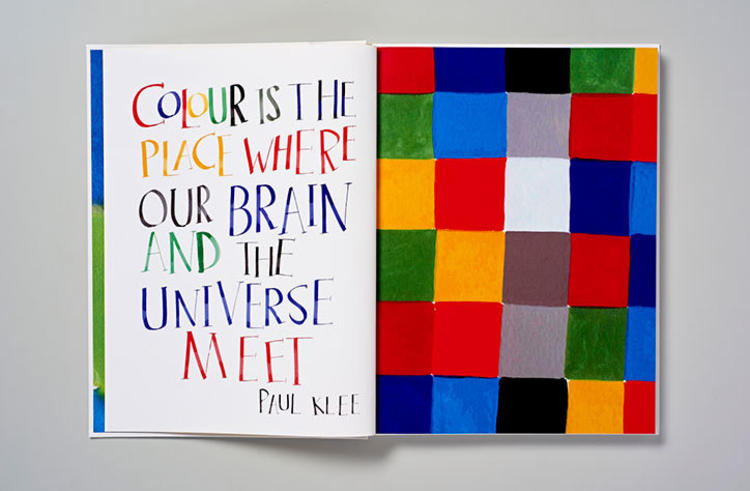 COLOUR IS THE
PLACE WHERE
OUR BRAIN
AND THE
UNIVERSE
MEET
PAUL KLEE